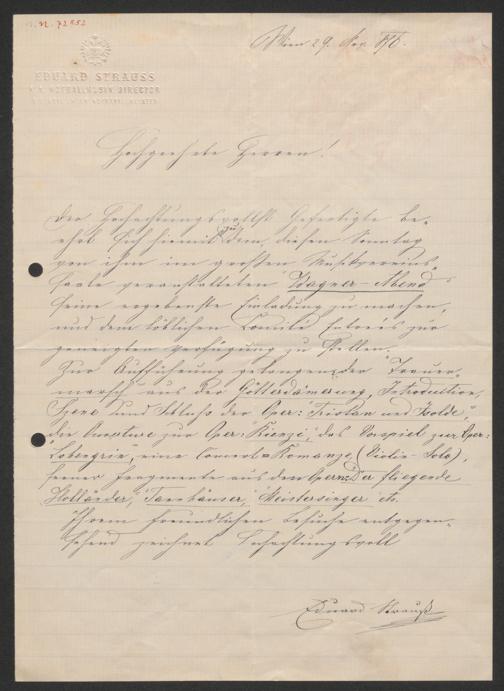 I. N. 72852
EDUARD STRAUSS
K. K. HOFBALLMUSIK-DIRECTOR
Wien 29. Nov. 876.
Hochgeehrte Herren!
Der Hochachtungsvollst Gefertigte be-
ehrt sich hiemit zu dem, diesen Sonntag
von ihm im großen Musikvereins-
saale veranstalteten "Wagner-Abend"
seine ergebenste Einladung zu machen,
und dem löblichen Comité Entrées zur
geneigten Verfügung zu stellen.
Zur Aufführung gelangen: der Trauer-
marsch aus der Götterdämerung, Introduction,
Szene und Schluss der Oper: "Tristan und Isolde",
die Ouverture zur Oper: "Rienzi", das Vorspiel zur Oper:
Lohengrin, eine Concert-Romanze (Violin-Solo),
ferner Fragmente aus den Opern: "Der fliegende
Holländer", "Tannhäuser", "Meistersinger" etc.
Ihrem freundlichen Besuche entgegen-
sehend zeichnet hochachtungsvoll
Eduard Strauß